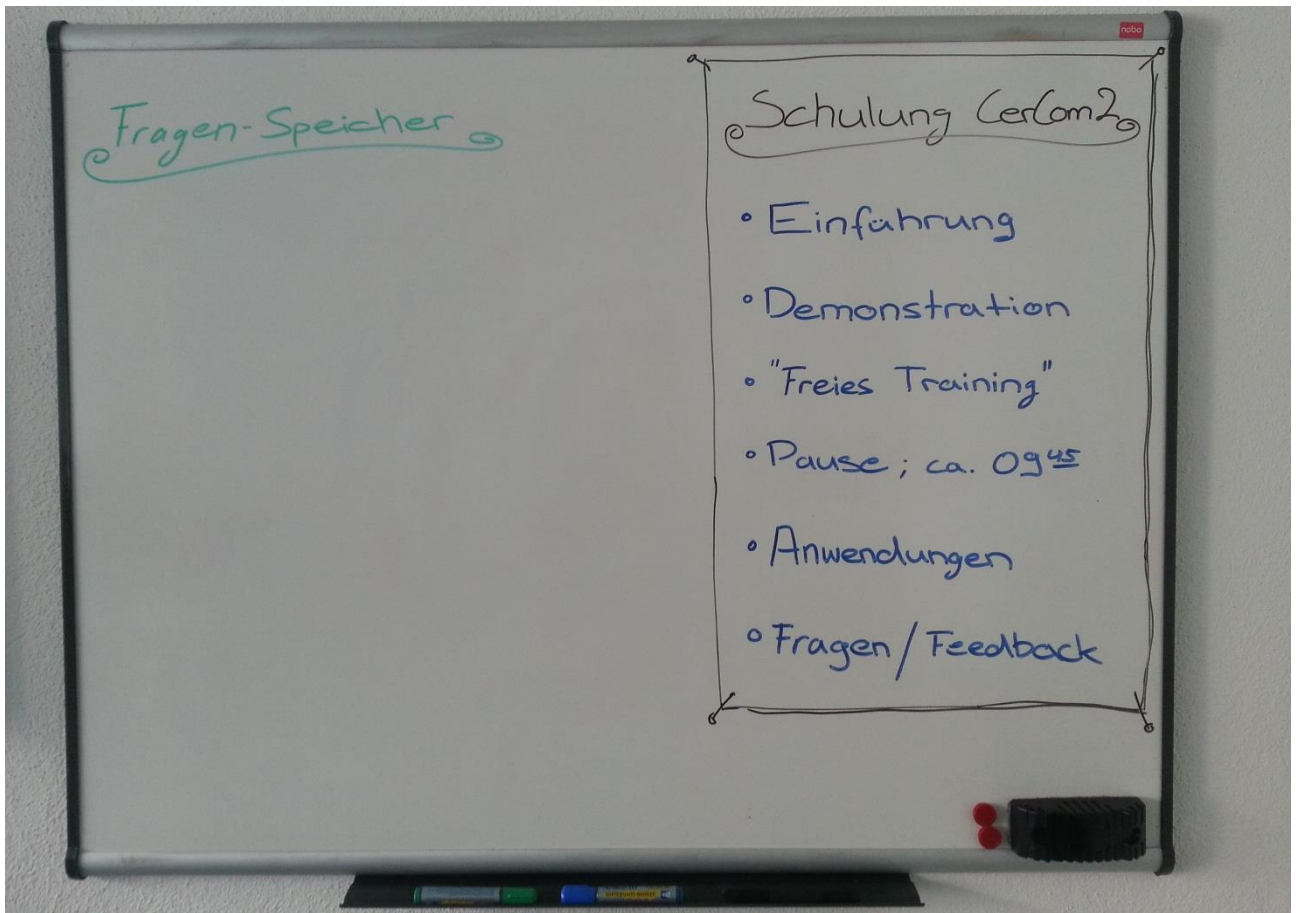 nobo
Fragen-Speicher
Schulung CerCom2
• Einführung
• Demonstration
• "Freies Training"
• Pause; ca. 09⁴⁵
• Anwendungen
• Fragen / Feedback